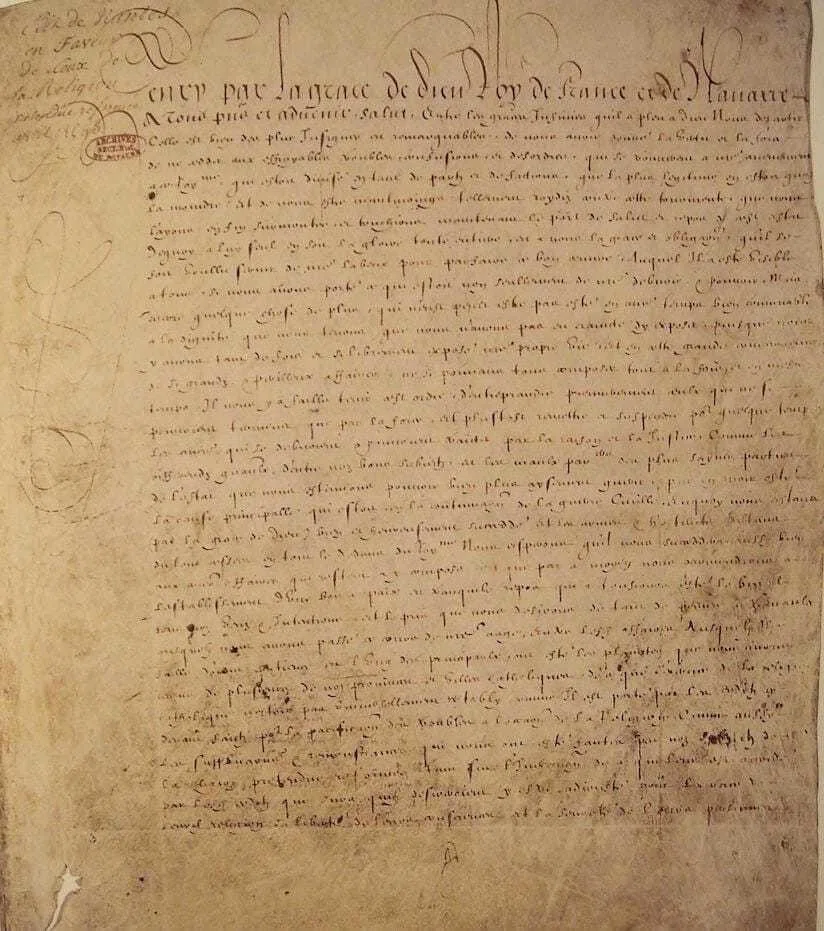 Edit de Nantes
en Faveur
de Ceux de
la Religion
pretendue reformee
ARCHIVES
SECT. HIST.
DU ROYAUME
Henry par la grace de dieu Roy de France et de Navarre
A tous pñs et advenir salut. Entre les graces Infinies qu'il a pleu a dieu Nous departir
Celle est bien des plus Insignes et remarquables, de nous avoir donné la vertu et la force
de ne ceder aux effroyables troubles, confusions et desordres, qui se trouverent a nre advenement
a ce Royme, qui estoit divisé en tant de partz et de factions, que la plus legitime en estoit quasi
la moindre, Et de nous estre neantmoings tellement roydiz contre ceste tourmente, que nous
l'ayons enfin surmontée, et touchions maintenant le port de salut et repos de cest estat
Dequoy a luy seul en soit la gloire toute entiere, et a nous la grace et obligaon, qu'il se
soit voullu servir de nre labeur pour parfaire ce bon œuvre, Auquel Il a esté visible
a tous, si nous avons porté ce qui estoit non seullement de nre debvoir et pouvoir, Mais
encore quelque chose de plus, qui n'eust peult estre pas esté en autre temps bien convenable
a la dignité que nous tenons, que nous n'avons pas eu craincte d'y exposer, puisque nous
y avons tant de fois et si librement exposé nre propre vie, Et en ceste grande concurrance
de si grandz et perilleux affaires, ne se pouvans tous composer tout a la fois et en mesme
temps, Il nous y a fallu tenir cest ordre, d'entreprandre premierement ceulx qui ne se
pouvoient terminer que par la force, et plustost remettre et suspendre pour quelque temps
les autres qui se debvoient et pouvoient traicter par la raison et la Justice, Comme les
differends generaulx d'entre noz bons subiectz, et les maulx particuliers des plus saynes parties
de l'estat, que nous estimions pouvoir bien plus aysement guerir, apres en avoir osté
la cause principalle, qui estoit en la continuaon de la guerre Civille, Enquoy nous estant
par la grace de Dieu bien et heureusement succeddé, Et les armes et hostilitez estans
du tout cessées en tout le dedans du Royme Nous esperons qu'il nous succeddera aussy bien
aux autres affaires qui restent a y composer, Et que par ce moyen nous parviendrons a
l'establissement d'une bonne paix et tranquille repos, qui a tousiours esté le but de
tous noz voeux et Intentions, et le prix que nous desirons de tant de peines et travaulx
ausquelz nous avons passé ce cours de nre aage, Entre les affaires ausquelz Il a
fallu donner patience, et l'un des principaulx, ont esté les plainctes que nous avons
receues de plusieurs de noz provinces et villes Catholiques, de ce que l'exercice de la religion
catholique n'estoit pas universellement restably comme Il est porté par les Edictz cy
devant faictz pour la pacification des troubles a l'occasion de la Religion, Comme aussy
les supplications et remonstrances qui nous ont esté faictes par noz subiectz de
la religion pretendue reformée, tant sur l'Inexecution de ce qui leur est accordé
par lesd edictz, que sur ce qu'ilz desireroient y estre adiousté pour l'exercice de
leurd religion, la liberté de leurs consciences, et la seureté de leurs personnes